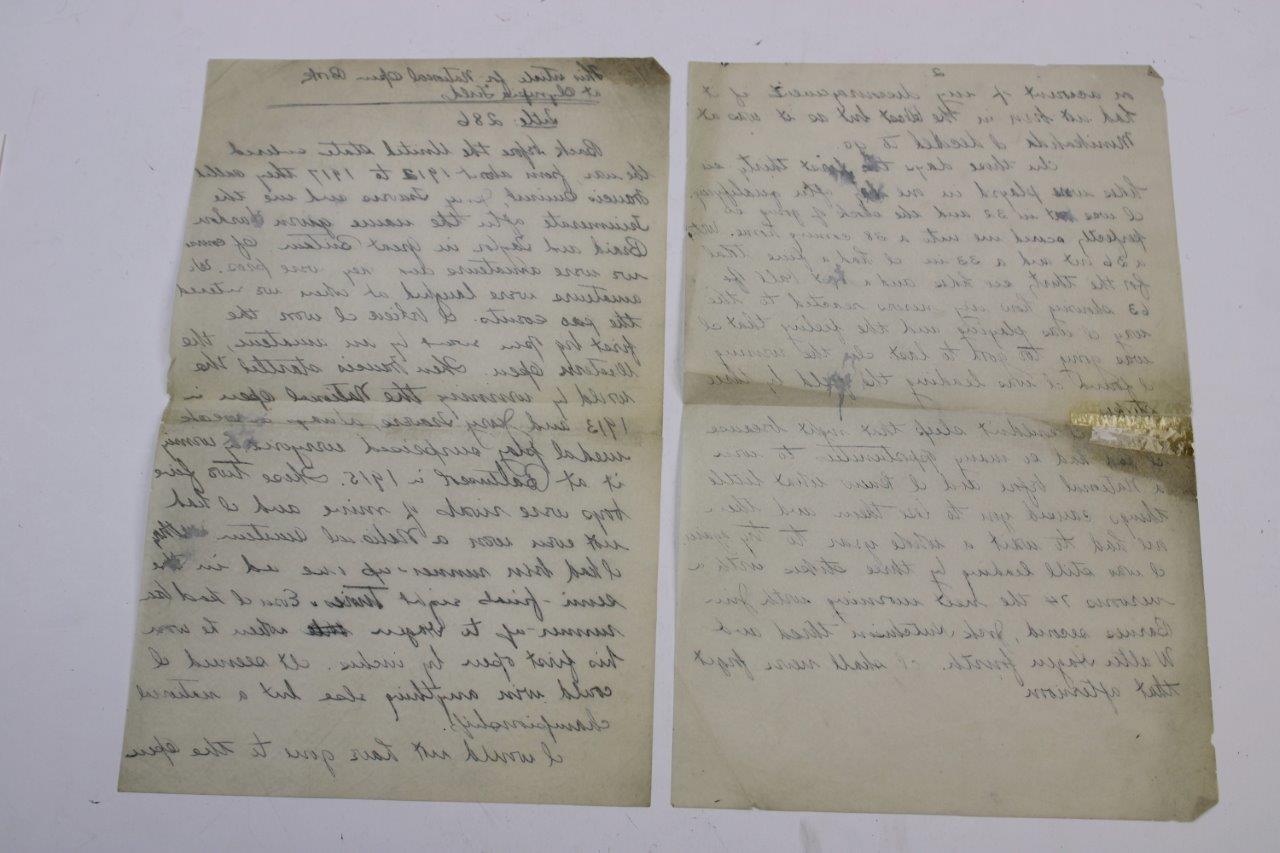 This article for National Open Book
at Olympia Fields
Title 286
Back before the United States entered
the war from about 1912 to 1917 they called
Francis Ouimet, Jerry Travers and me the
Triumverate after the name given Vardon
Braid and Taylor in Great Britain. Of course
we were amateurs and they were pros. We
amateurs were laughed at when we entered
the pro events. I won the
first big Open won by an amateur, the
Western Open. Then Francis startled the
world by winning the National Open in
1913 and Jerry Travers, always a weak
medal play surprised everyone by winning
it at Baltusrol in 1915. These two fine
boys were rivals of mine and I had
not even won a National Amateur
I had been runner-up and in the
semi-finals eight times. Even I had been
runner-up to Hagen when he won
his first open by inches. It seemed I
could win anything else but a national
championship.
I would not have gone to the Open
2
on account of my discouragement if it
had not been in the West but as it was at
Minikahda I decided to go
In those days the first thirty six
holes were played in one day after qualifying.
I was out in 32 and the shock of going so
perfectly scared me into a 38 coming home. With
a 36 out and a 33 in I had a fine total
for the thirty six holes and a best ball of
63 showing how my nerves reacted to the
way I was playing and the feeling that it
was going too good to last
I found I was leading the field by three
strokes
I couldn't sleep that night because
I had had so many opportunities to win
a National Open and I knew what little
things caused you to lose them and then
one had to wait a whole year to try again.
I was still leading by three strokes with a
nervous 74 the next morning with Jim
Barnes second, Jock Hutchison third and
Walter Hagen fourth. I shall never forget
that afternoon